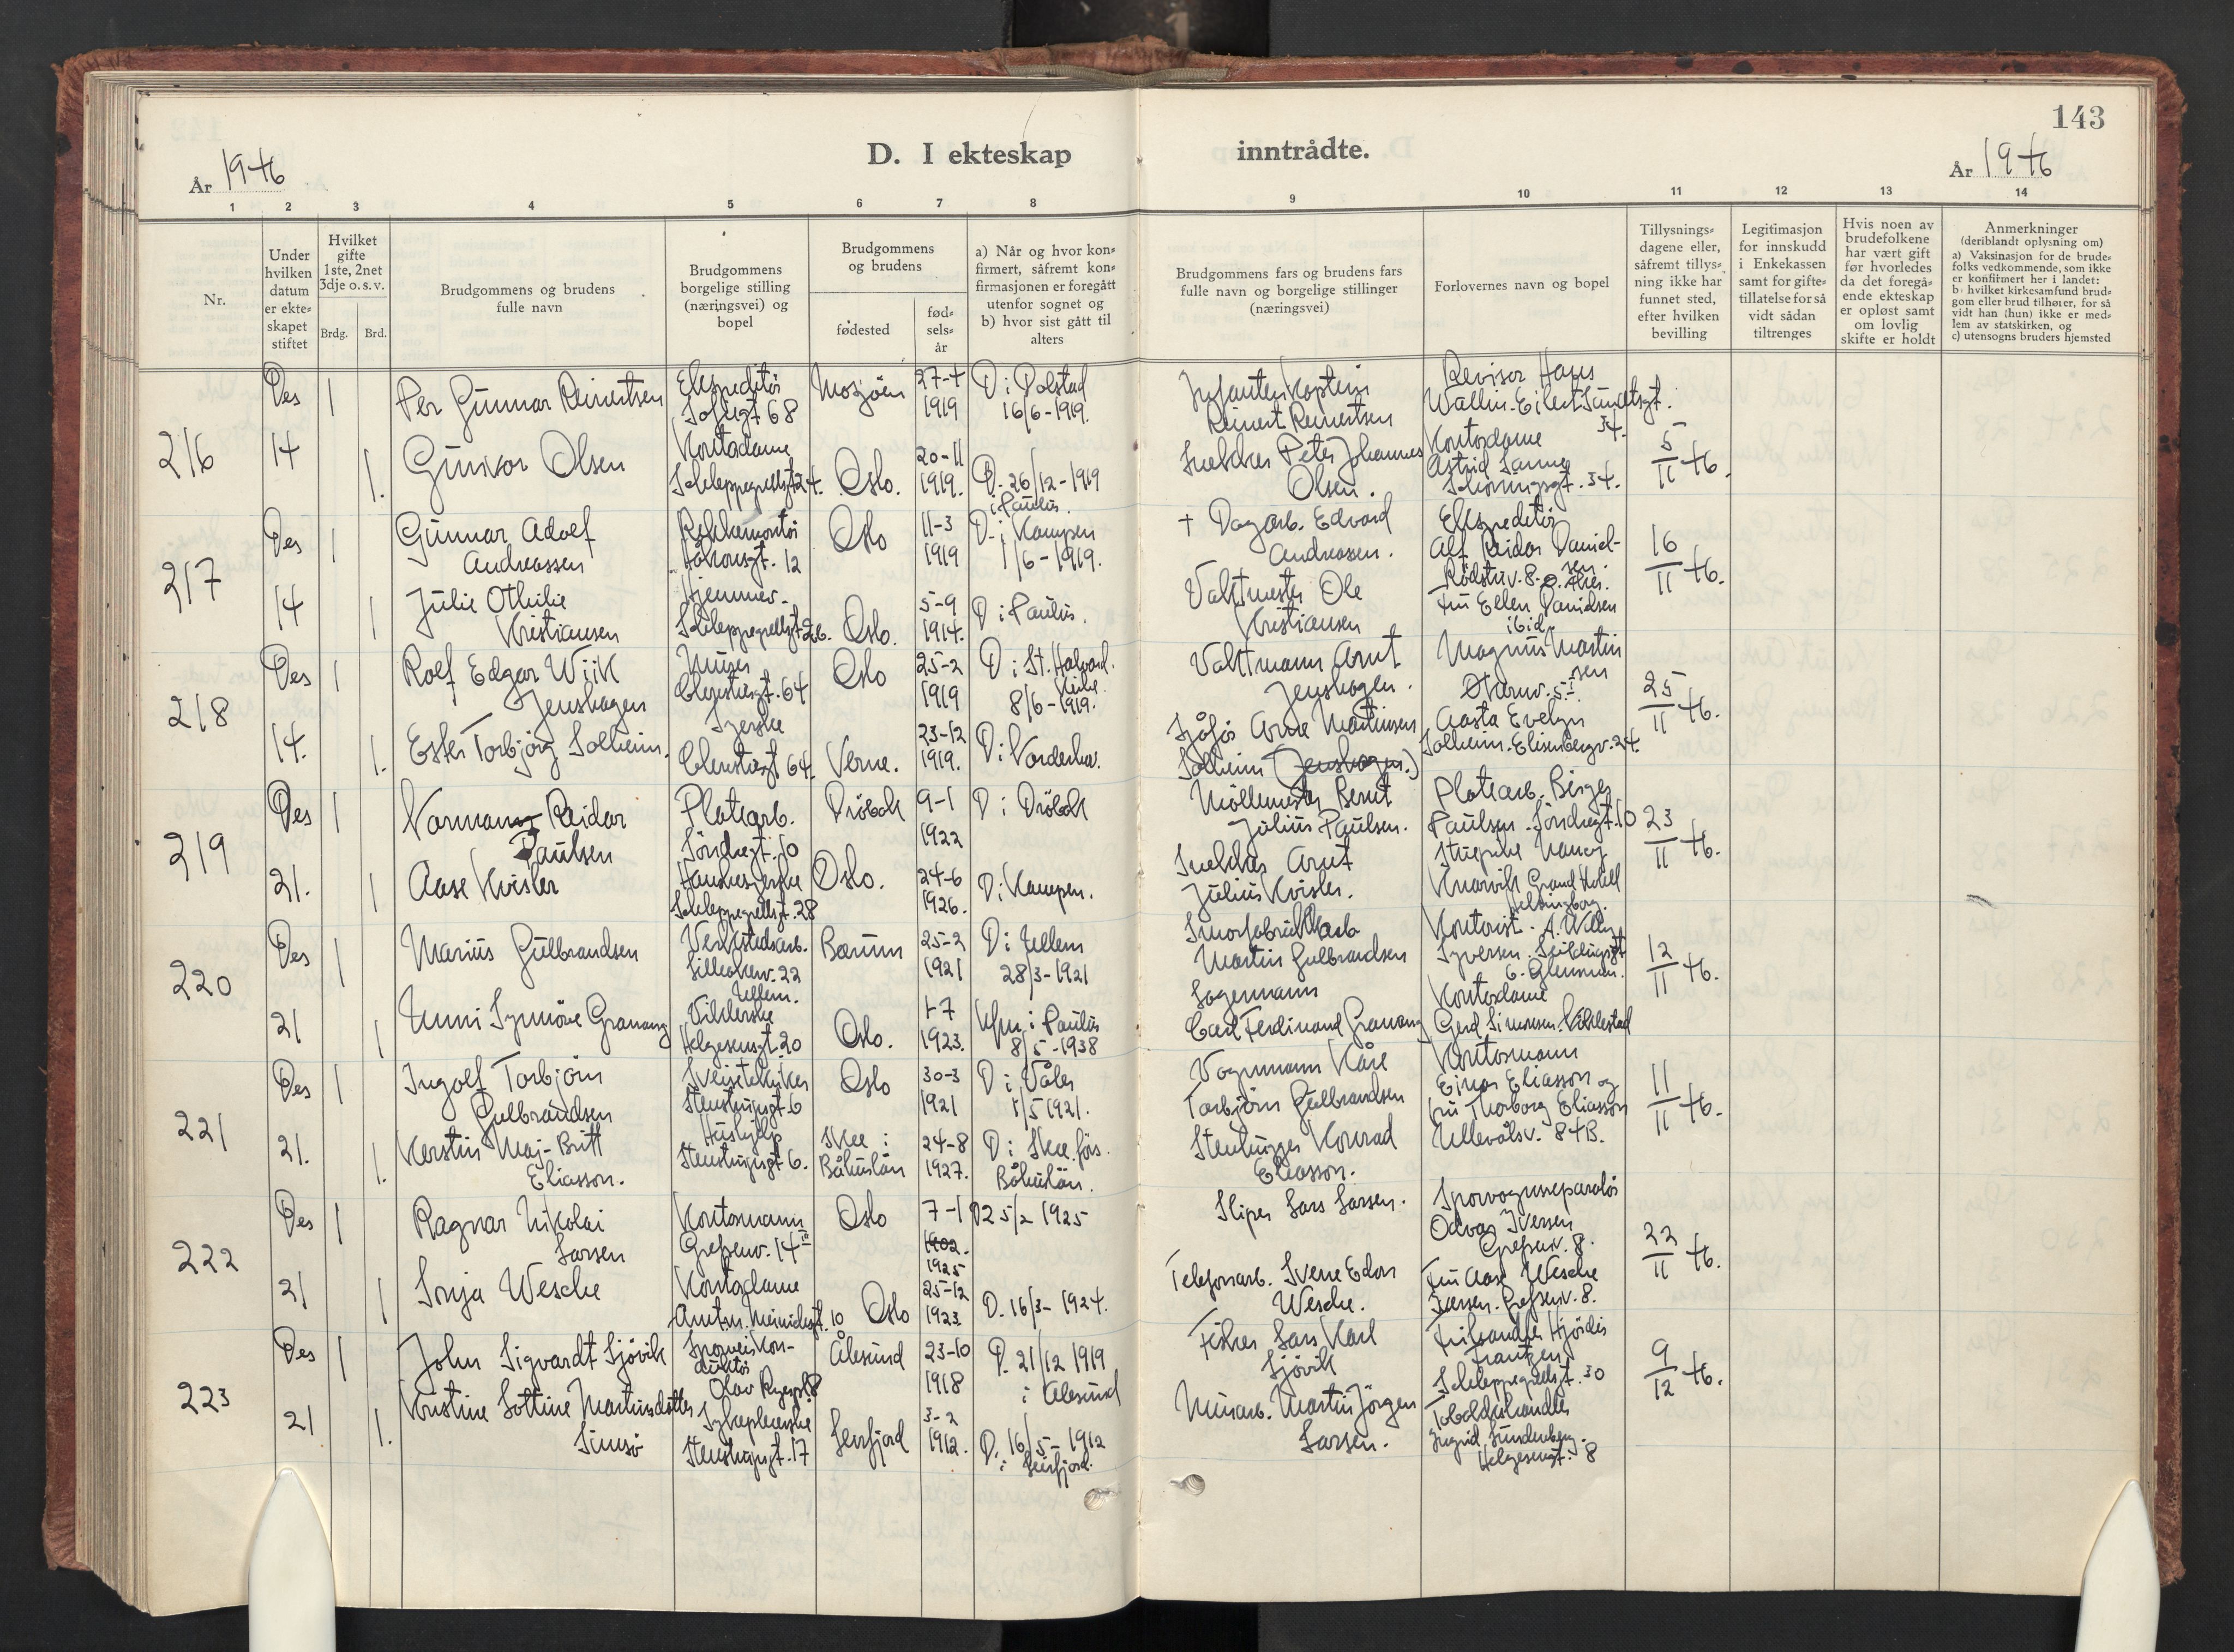 143
D. I ekteskap inntrådte.
År 1946
År 1946
1 2 3 4 5 6 7 8 9 10 11 12 13 14
Nr.
Under
hvilken
datum
er ekte-
skapet
stiftet
Hvilket
gifte
1ste, 2net
3dje o. s. v.
Brdg. Brd.
Brudgommens og brudens
fulle navn
Brudgommens
borgelige stilling
(næringsvei) og
bopel
Brudgommens
og brudens
fødested
fød-
sels-
år
a) Når og hvor kon-
firmert, såfremt kon-
firmasjonen er foregått
utenfor sognet og
b) hvor sist gått til
alters
Brudgommens fars og brudens fars
fulle navn og borgelige stillinger
(næringsvei)
Forlovernes navn og bopel
Tillysnings-
dagene eller,
såfremt tillys-
ning ikke har
funnet sted,
efter hvilken
bevilling
Legitimasjon
for innskudd
i Enkekassen
samt for gifte-
tillatelse for så
vidt sådan
tiltrenges
Hvis noen av
brudefolkene
har vært gift
før hvorledes
da det foregå-
ende ekteskap
er opløst samt
om lovlig
skifte er holdt
Anmerkninger
(deriblandt oplysning om)
a) Vaksinasjon for de brude-
folks vedkommende, som ikke
er konfirmert her i landet:
b) hvilket kirkesamfund brud-
gom eller brud tilhører, for så
vidt han (hun) ikke er med-
lem av statskirken, og
c) utensogns bruders hjemsted
216
Des
14
1
1.
Per Gunnar Reinertsen
Ekspeditør
Sofiesgt 68
Mosjøen
27-4
1919
D i Dolstad
16/6-1919.
Infanterikaptein
Reinert Reinertsen
Revisor Hans
Wallin-Eilert Sundtsgt.
34.
Gunvor Olsen
Kontordame
Schleppegrellsgt 24.
Oslo.
20-11
1919.
D. 26/12-1919
i Paulus.
Snekker Peter Johannes
Olsen.
Kontordame
Astrid Sanne
Schøningsgt. 34.
5/11 46.
217
Des
14
1
1
Gunnar Adolf
Andreassen
Rekkemontør
Håkonsgt. 12
Oslo
11-3
1919
D. i Kampen
1/6-1919.
+ Dagarb. Edvard
Andreassen.
Ekspeditør
Alf Reidar Daniel-
sen.
Rødstuv. 8. Ø. Aker.
Julie Othilie
Kristiansen
Hjemmev.
Schleppegrellsgt 26.
Oslo.
5-9
1914.
D i Paulus.
Vaktmester Ole
Kristiansen
Fru Ellen Danielsen
ibid.
16/11 46.
218
Des
14.
1
1.
Rolf Edgar Wiik
Jenshagen
Murer
64
Oslo
25-2
1919
D i St. Halvard.
Kirke.
8/6-1919.
Vaktmann Arnt
Jenshagen.
Magnus Martin
sen
Ester Torbjörg Solheim.
Syerske
64.
Verne.
23-12
1919.
D i Vonderhav.
Sjåfør Arne Martinsen
Solheim (Jenshagen.)
Aasta Evelyn
Solheim. Elisenbergv. 24.
25/11 46.
219
Des
21.
1
1
Norman Reidar
Paulsen
Platearb.
Søndregt. 10
Drøbak
9-1
1922
D i Drøbak
Møllemester Bernt
Julius Paulsen.
Platearb. Birger
Paulsen. Søndregt. 10
Aase Kvisler
Hanskesyerske
Schleppegrellsgt. 28
Oslo.
24-6
1926.
D i Kampen.
Snekker Arnt
Julius Kvisler.
Stuepike Nancy
Knarvik Grand Hotell
Helsingborg.
23/11 46.
220
Des
21
1
1
Marius Gulbrandsen
Verkstedsarb.
Lilleakerv. 22
Ullern.
Bærum
25-2
1921
D i Ullern
28/3-1921
Smørfabrikkarb
Martin Gulbrandsen
Kontorist. A. Willy
Syversen.
6. Glemmen.
Unni Synnöve Granang
Viklerske
Helgesensgt. 20
Oslo.
1-7
1923.
Kfm. i Paulus
8/5-1938
Lagermann
Carl Ferdinand Granang
Kontordame
Gerd Simonsen.
12/11 46.
221
Des
21.
1
1.
Ingolf Torbjörn
Gulbrandsen
Sveisetekniker
Steenstrupsgt. 6
Oslo
30-3
1921
D i Våler
1/5 1921.
Vognmann Kåre
Torbjörn Gulbrandsen
Kontormann
Einar Eliasson og
fru Thorborg Eliasson
Ullevålsv. 84B.
Kerstin Maj-Britt
Eliasson.
Hushjelp
Steenstrupsgt 6.
Skee i
Båhuslän
24-8
1927.
D i Skee förs.
Båhuslän.
Stenhugger Konrad
Eliasson.
11/11 46.
222
Des
21
1
1
Ragnar Nikolai
Larsen
Kontormann
Grefsenv. 14
Oslo
7-1
1902.
1925
D 25/2 1925
Sliper Lars Larsen.
Sporvognsreparatør
Odvar Iversen
Grefsenv. 8.
Sonja Wesche
Kontordame
Amtm. Meinichsgt. 10
Oslo
25-12
1923
D. 16/3-1924.
Telefonarb. Sverre Edon
Wesche.
Fru Aase Wesche
Iversen. Grefsenv. 8.
22/11 46.
223
Des
21
1
1.
John Sigvardt Sjövik
Sporveiskon-
duktør
Olav Ryespl. 8
Ålesund
23-10
1918
D. 21/12 1919
i Ålesund
Fisker Lars Karl
Sjövik
Hjördis
Frantzen
Schleppegrellsgt. 30
Kristine Lottine Martinsdatter
Simsø
Sykepleierske
Steenstrupsgt. 17
Leirfjord
3-2
1912.
D. 16/5-1912
i Leirfjord.
Murarb. Martin Jörgen
Larsen.
Tobakkshandler
Ingrid Sundenberg.
Helgesensgt. 8
9/12 46.